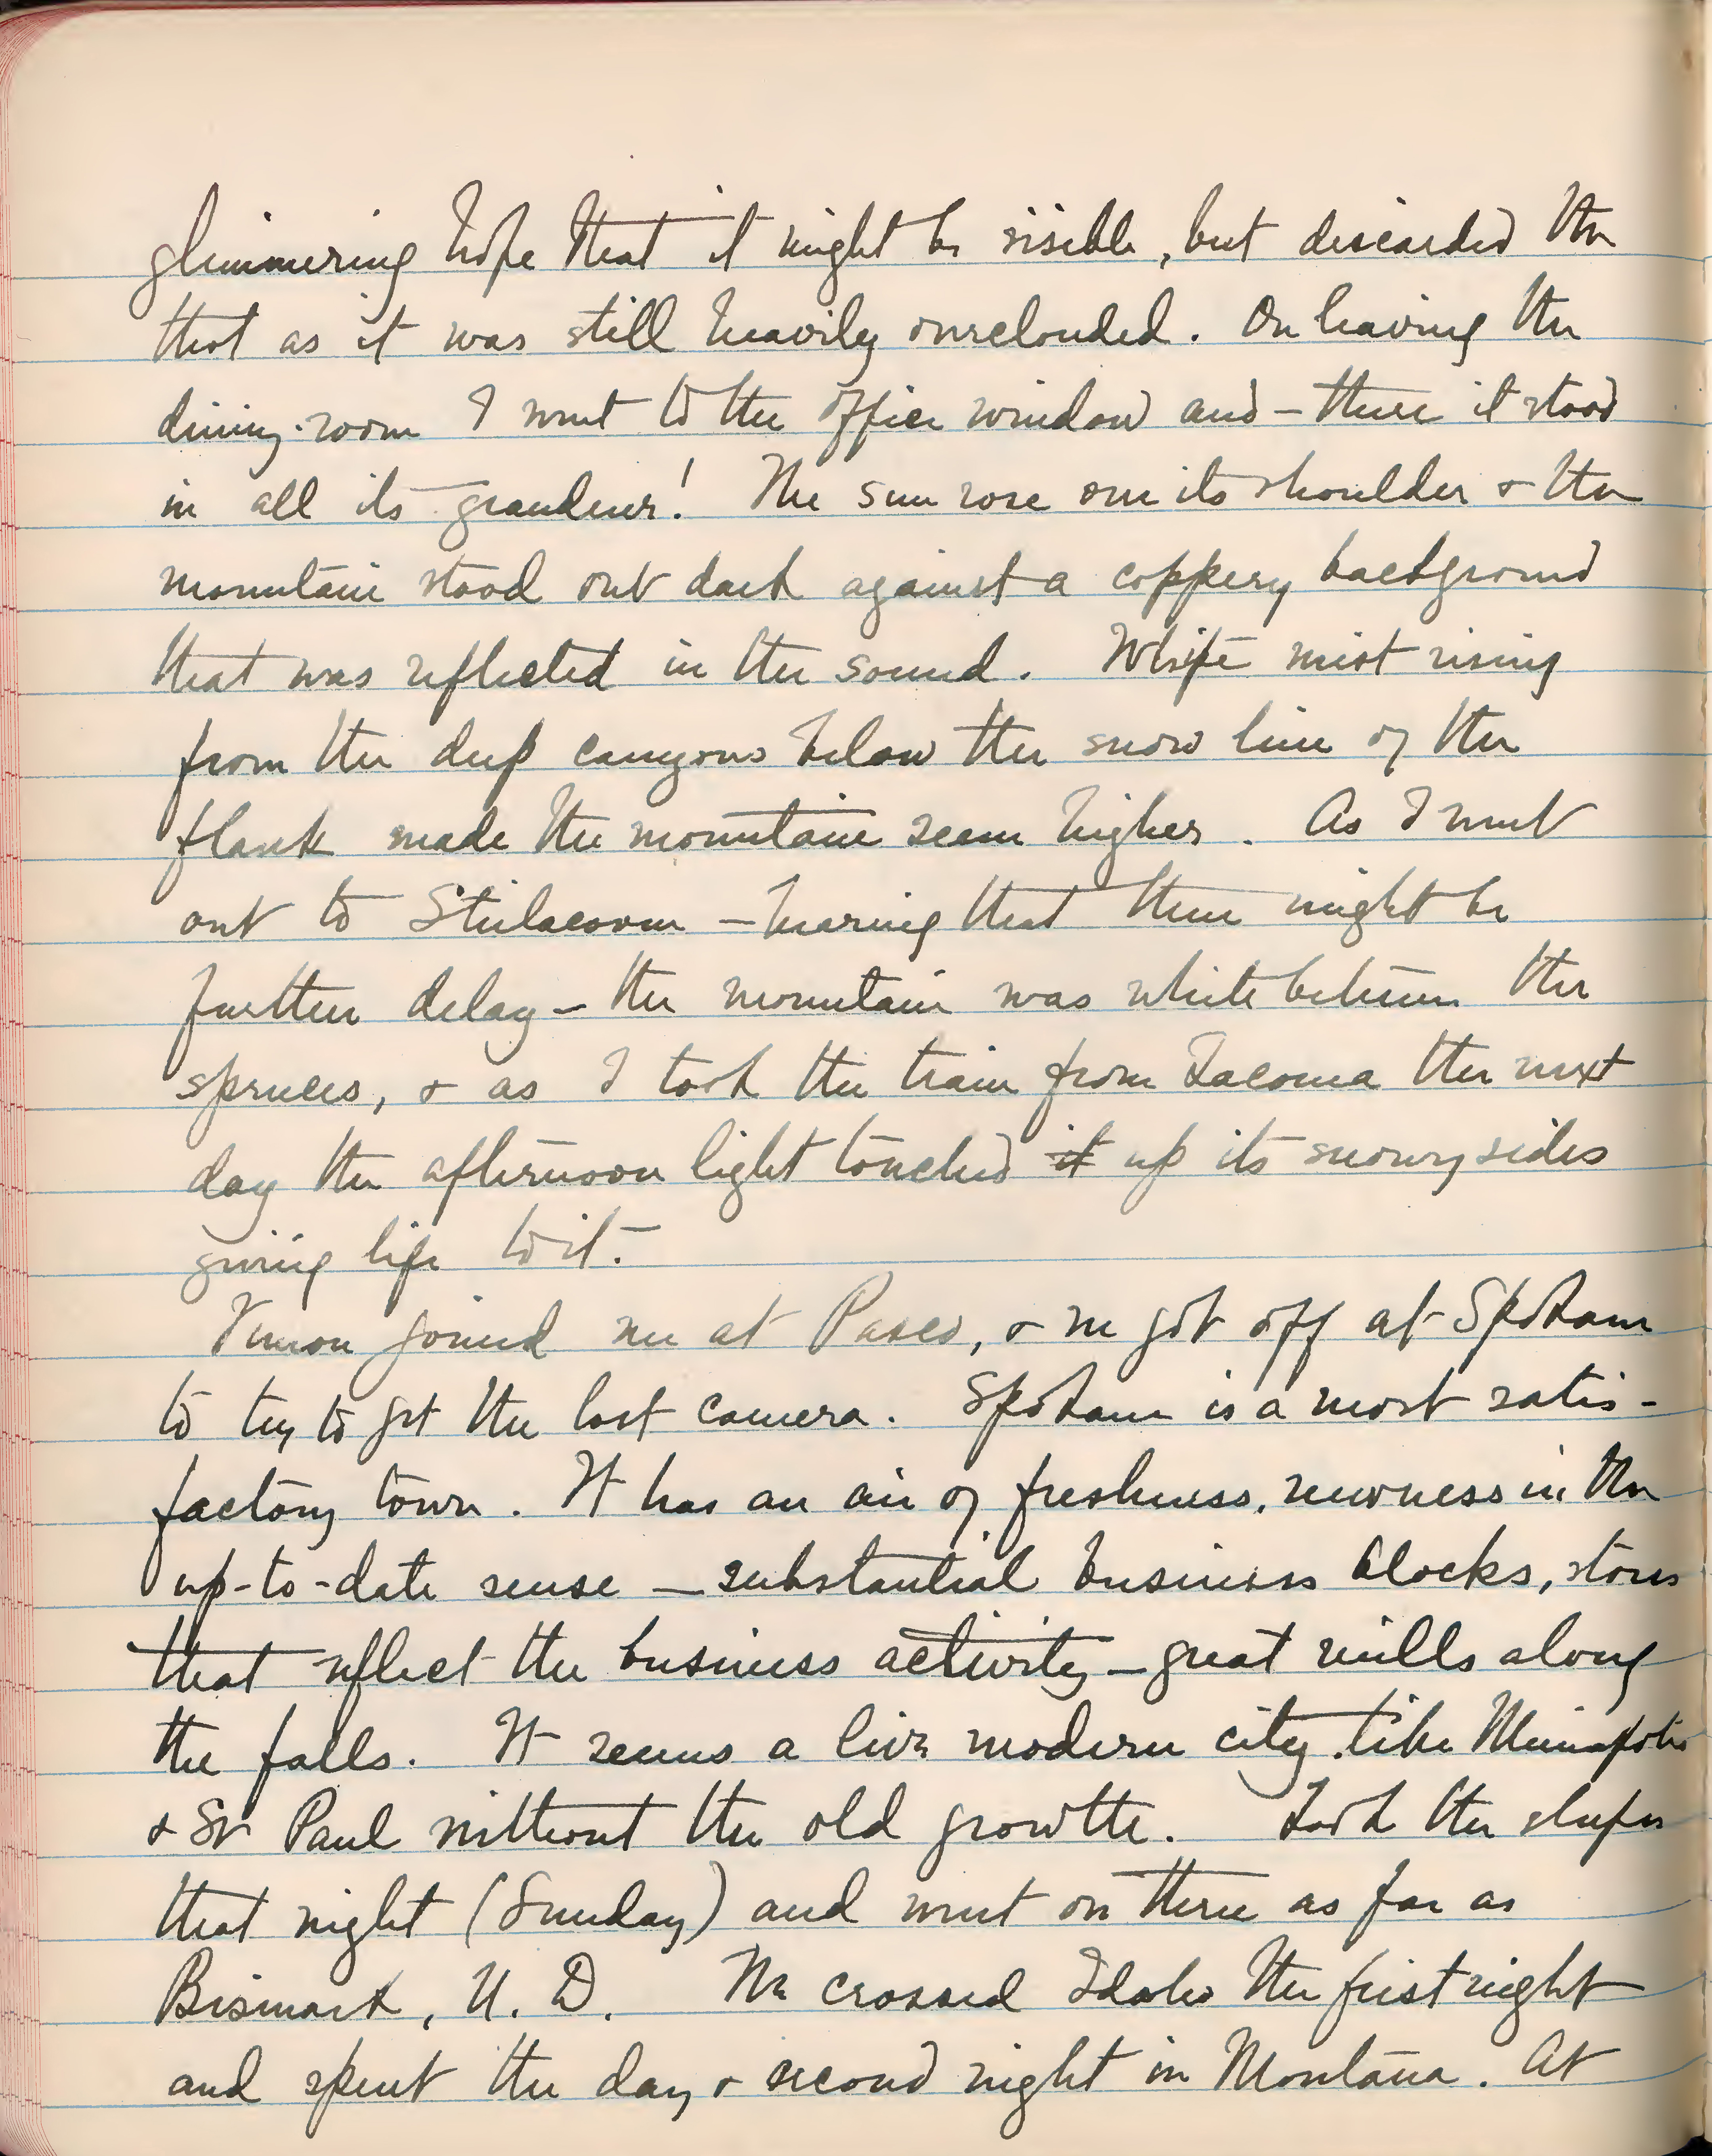 glimmering hope that it might be visible, but discarded the
that as it was still heavily overclouded. On leaving the
dining-room I went to the office window and – there it stood
in all its grandeur! The sun rose over its shoulder & the
mountain stood out dark against a coppery background
that was reflected in the sound. White mist rising
from the deep canyons below the snow line of the
flank made the mountain seem higher. As I went
out to Steilacoom – hearing that there might be
further delay – the mountain was white between the
spruces, & as I took the train from Tacoma the next
day the afternoon light touched it up its snowy sides
giving life to it.
Vernon joined me at Pasco, & we got off at Spokane
to try to get the lost camera. Spokane is a most satis-
factory town. It has an air of freshness, newness in the
up-to-date sense – substantial business blocks, stores
that reflect the business activity – great mills along
the falls. It seems a live modern city like Minneapolis
& St Paul without the old growth. Took the sleeper
that night (Sunday) and went on there as far as
Bismark, N. D. We crossed Idaho the first night
and spent the day & second night in Montana. At